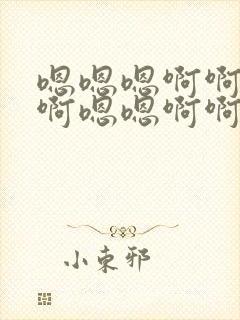 嗯嗯嗯啊啊
啊嗯嗯啊啊
小束邪